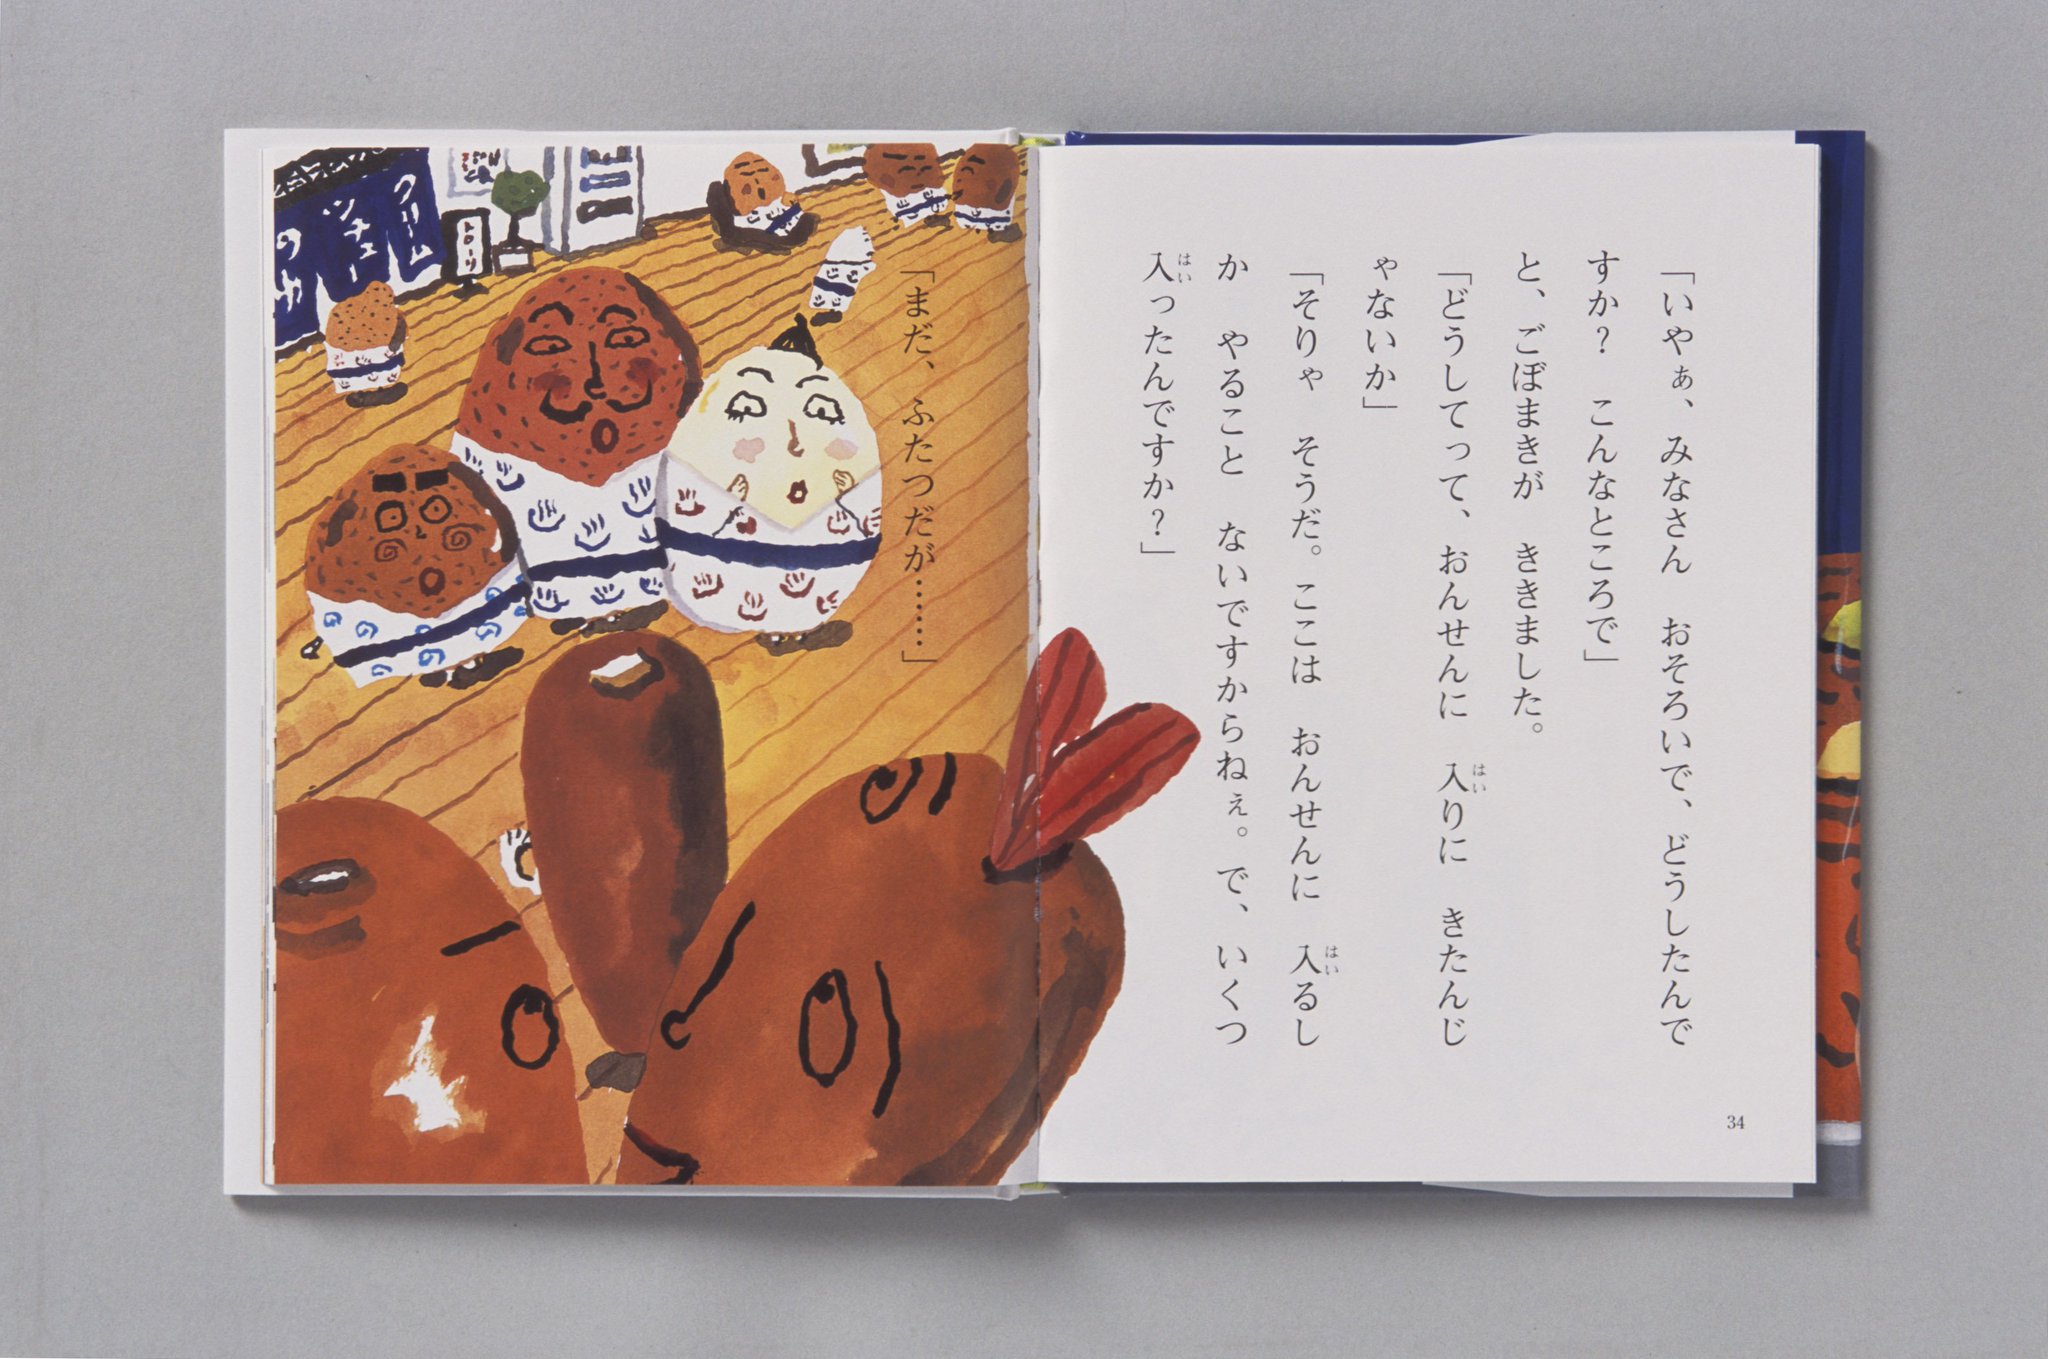 「いやぁ、みなさん　おそろいで、どうしたんで
すか？　こんなところで」
と、ごぼまきが　ききました。
「どうしてって、おんせんに　入りに　きたんじ
ゃないか」
「そりゃ　そうだ。ここは　おんせんに　入るし
か　やること　ないですからねぇ。で、いくつ
入ったんですか？」
はい
はい
はい
34
「まだ、ふたつだが……」
クリーム
シチュー
のゆ
トローリ